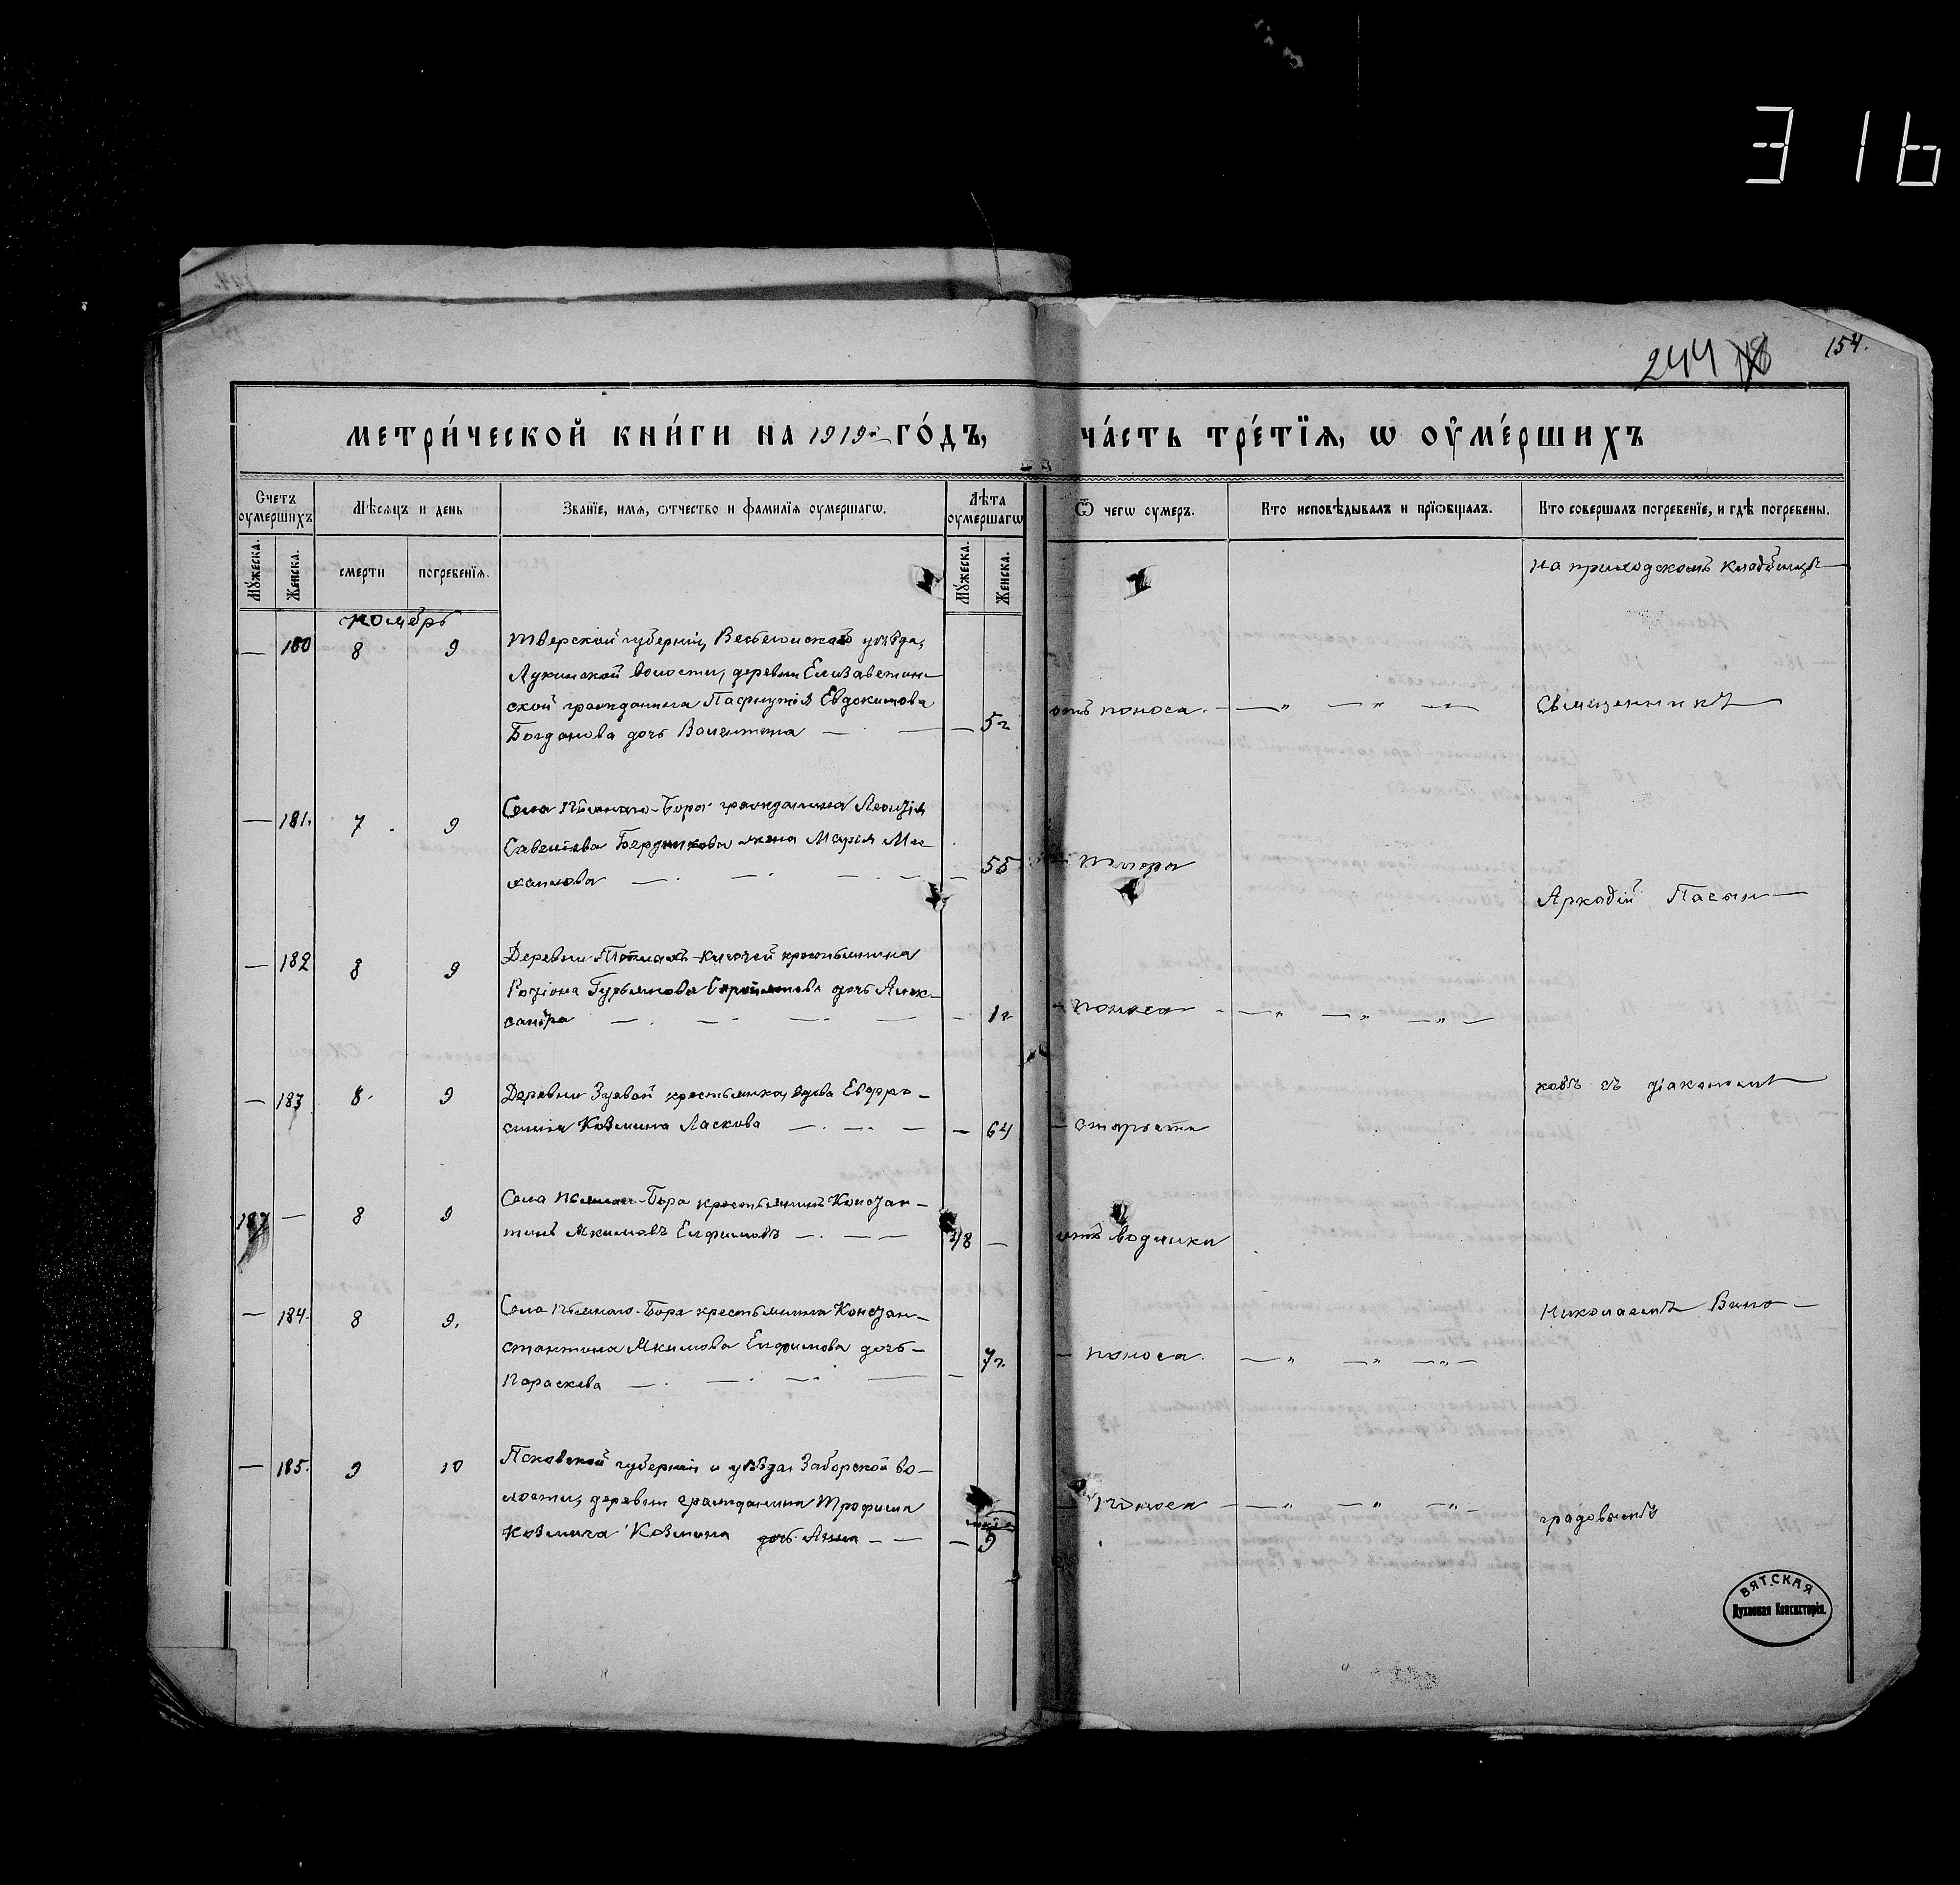 316
244 118 154.
МЕТРИ́ЧЕСКОЙ КНИ́ГИ НА 1919й ГО́ДЪ, ЧА́СТЬ ТРЕ́ТЇѦ, Ѡ ОУ҆МЕ́РШИХЪ
Счетъ оумершихъ
Мѣсѧцъ и день
Званїе, имѧ, ѿтчество и фамилїѧ оумершагѡ.
Лѣта оумершагѡ
Ѿ чегѡ оумеръ.
Кто исповѣдывалъ и прїѡбщалъ.
Кто совершалъ погребенїе, и гдѣ погребены.
Мужеска.
Женска.
смерти
погребенїѧ.
Мужеска.
Женска.
на приходскомъ кладбищѣ
ноябрь
— 180 8 9 Тверской губерніи, Весьегонскаго уѣзда,
Лукинской волости, деревни Елизаветин-
ской гражданина Пафнутія Евдокимова
Богданова дочь Валентина — — 5г отъ поноса. — „ — „ — „ — Священникъ
— 181. 7 9 Села Пьянаго-Бора гражданина
Савелова Бердникова жена Марія Ми-
хаилова — 55 тифа
Аркадій Пасын—
— 182 8 9 Деревни Ключей крестьянина
Родіона Гурьянова дочь Алек-
сандра — — 1г — поноса — „ — „ — „ —
— 183 8 9 Деревни Зуевой крестьянка, вдова Евфро-
синія Козмина Ласкова — — 64 — старости
ковъ съ діакономъ
137 — 8 9 Села Пьянаго-Бора крестьянинъ Констан-
тинъ Акимовъ Елфимовъ — 48 — отъ водянки
— 184. 8 9. Села Пьянаго-Бора крестьянина Констан-
стантина Акимова Елфимова дочь-
Параскева — — 7г. — поноса. — „ — „ — „ —
Николаемъ Вино—
— 185. 9 10 Псковской губерніи и уѣзда Заборской во-
лости, деревни гражданина Трофима
Козмича Козмина дочь Анна — — 9 — поноса — „ — „ — „ —
градовымъ
ВЯТСКАЯ
Духовная Консисторія.